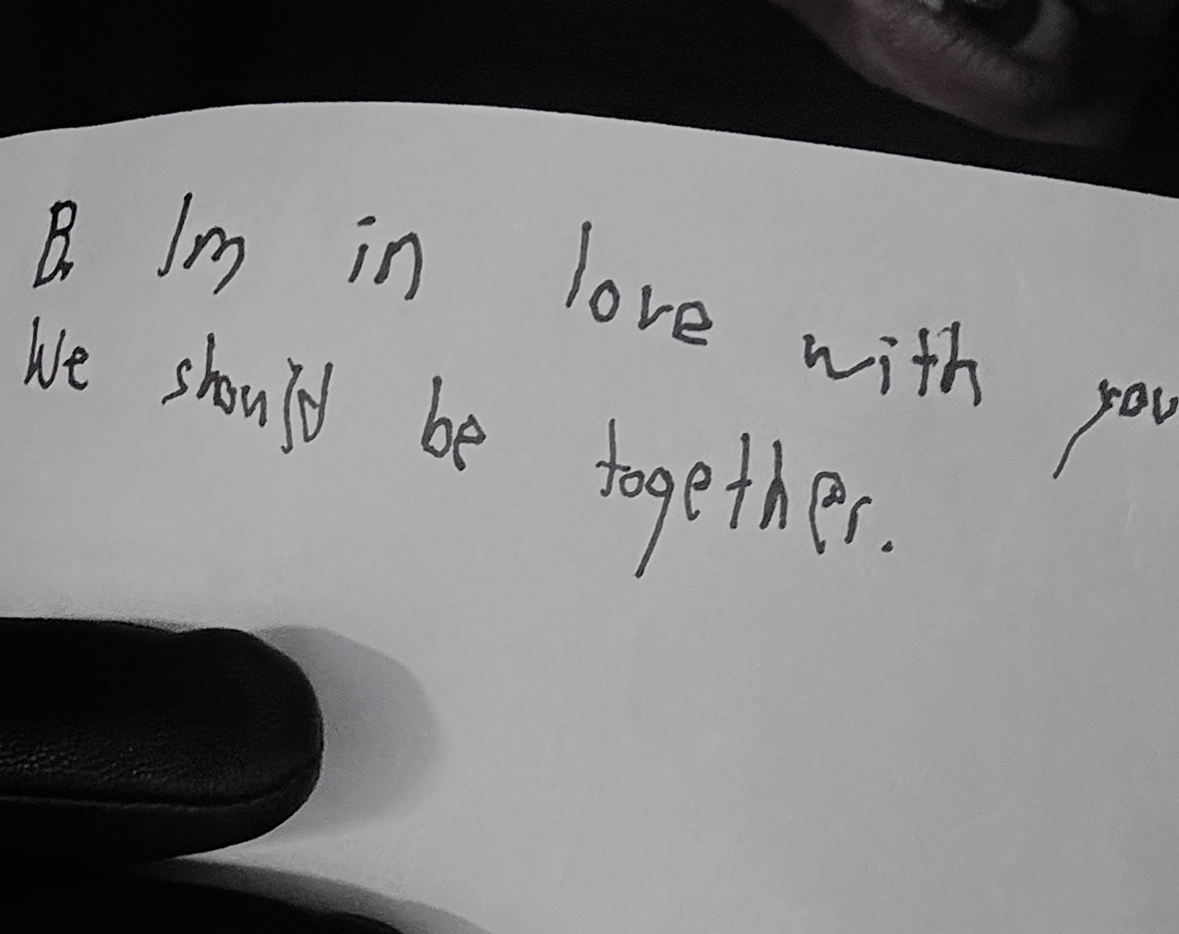 B. Im in love with you
We should be together.